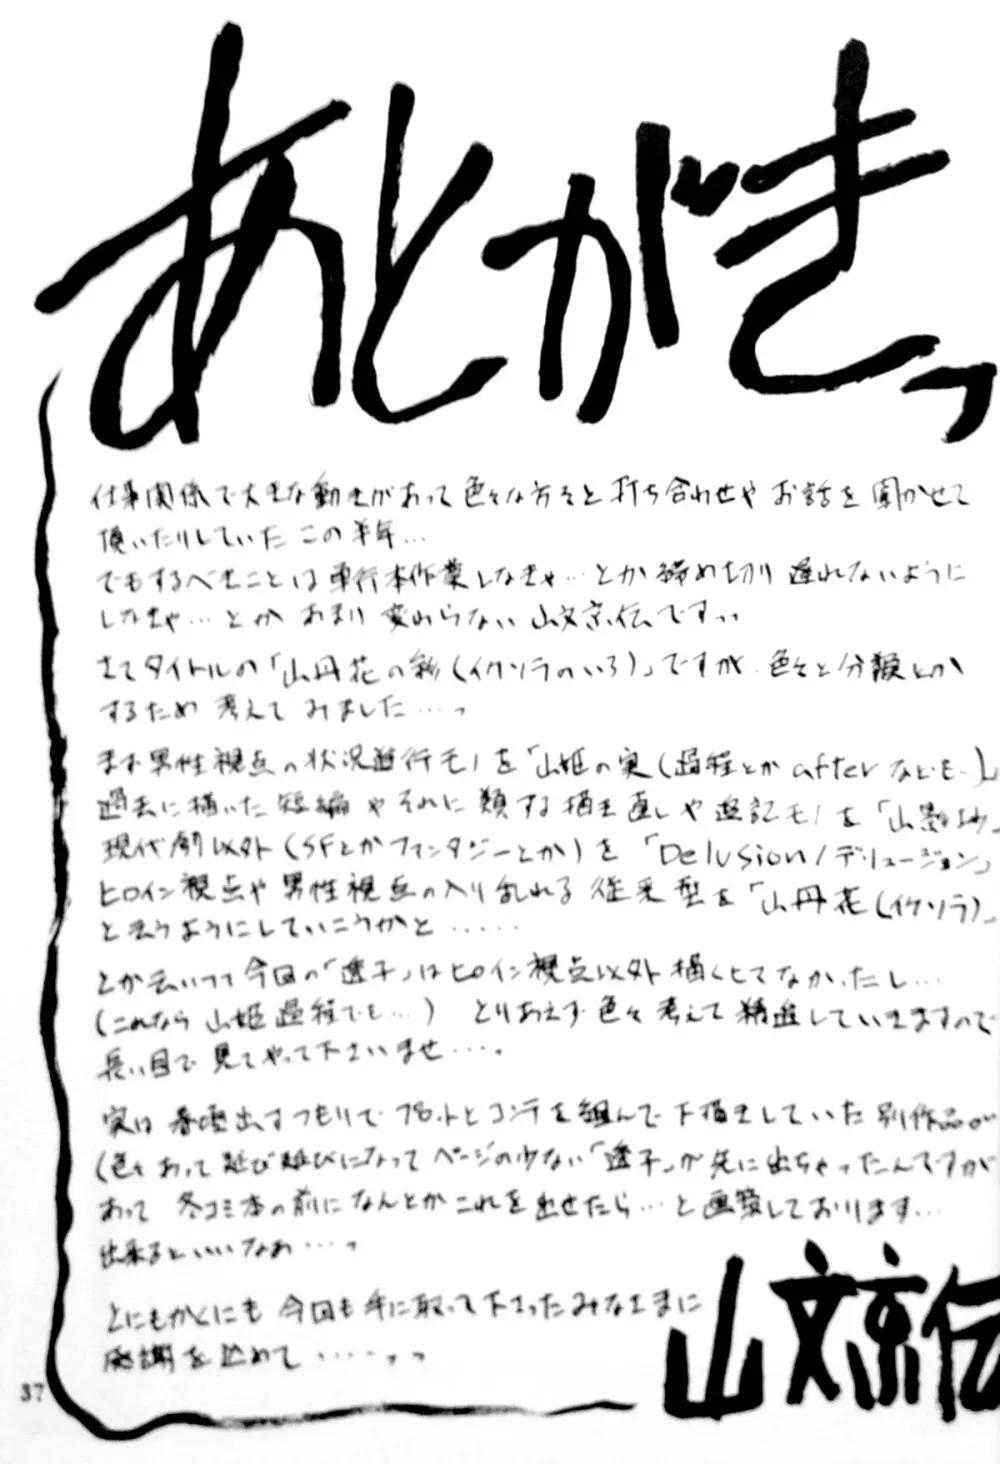 あとがきっ
仕事関係で大きな動きがあって色々な方々と打ち合わせや お話を聞かせて
頂いたりしていた この半年…
でもするべきことは単行本作業しなきゃ…とか 締め切り 遅れないように
しなきゃ…とか あまり 変わらない 山文京伝ですっっ
さてタイトルの「山丹花の彩(イケソラのいろ)」ですが 色々と分類とか
するため 考えて みました…っ
まず男性視点の状況進行モノを「山姫の実(過程とか after なども)」
過去に描いた 短編 や それに 類する 描き直しや 追記モノを「山
現代劇以外(SFとかファンタジーとか)を 「Delusion/デリュージョン」
ヒロイン視点や 男性視点の入り乱れる 従来型を「山丹花(イケソラ)」
と云うようにしていこうかと……
とか云いつつ今回の「透子」はヒロイン視点以外 描くヒマなかったし…
(これなら 山姫過程でも…) とりあえず 色々 考えて 精進していきますので
長い目で 見てやって下さいませ…。
実は 春 出すつもりで プロットとコンテを組んで下描きしていた 別作品が
(色々あって 延び延びになって ページの少ない「透子」が先に出ちゃったんですが
あって 冬コミ本の前になんとかこれを出せたら…と画策しております…
出来るといいなぁ…っ
とにもかくにも 今回も手に取って下さったみなさまに
感謝を込めて……っっ
山文京伝
37